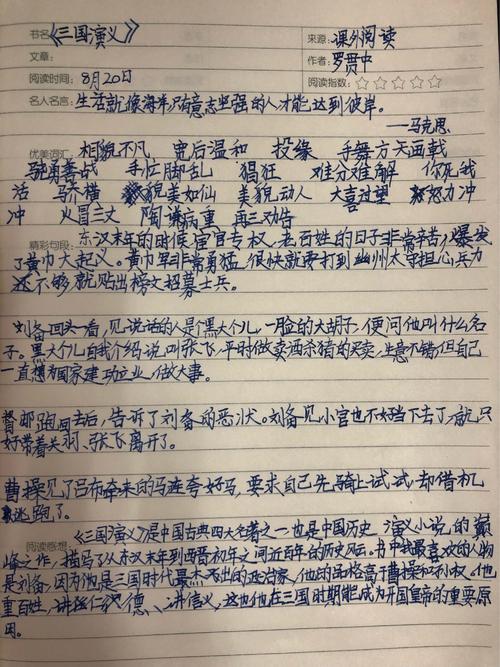 书名《三国演义》 来源：课外阅读
文章： 作者：罗贯中
阅读时间：8月20日 阅读指数：☆☆☆☆☆
名人名言：生活就像海洋，只有意志坚强的人才能达到彼岸。
——马克思
优美词汇： 相貌不凡 宽后温和 投缘 手舞方天画戟
骁勇善战 手忙脚乱 猖狂 难分难解 你死我
活 马齐横 貌美如仙 美貌动人 大喜过望 努力冲
冲 火冒三丈 陶谦病重 再三劝告
精彩句段： 东汉末年的时候宦官专权，老百姓的日子非常辛苦，爆发
了黄巾大起义。黄巾军非常勇猛，很快就要打到幽州太守担心兵力
不够，就贴出榜文招募士兵。
刘备回头一看，见说话的人是个黑大个儿，一脸的大胡子，便问他叫什么名
子。黑大个儿自我介绍说叫张飞，平时做卖酒杀猪的买卖，生意不错但自己
一直想为国家建功立业，做大事。
督邮跑回去后，告诉了刘备的恶状。刘备见小官也不好当下去了，就只
好带着关羽、张飞离开了。
曹操见了吕布牵来的马连夸好马，要求自己先骑上试试，却借机
逃跑了。
阅读感想： 《三国演义》是中国古典四大名著之一，也是中国历史演义小说的巅
峰之作，描写了从东汉末年到西晋初年之间近百年的历史风云。书中我最喜欢的人物
是刘备，因为他是三国时代最杰出的政治家，他的品格高于曹操和孙权。他
重百姓，讲仁德、讲信义，这也他在三国时期能成为开国皇帝的重要原
因。